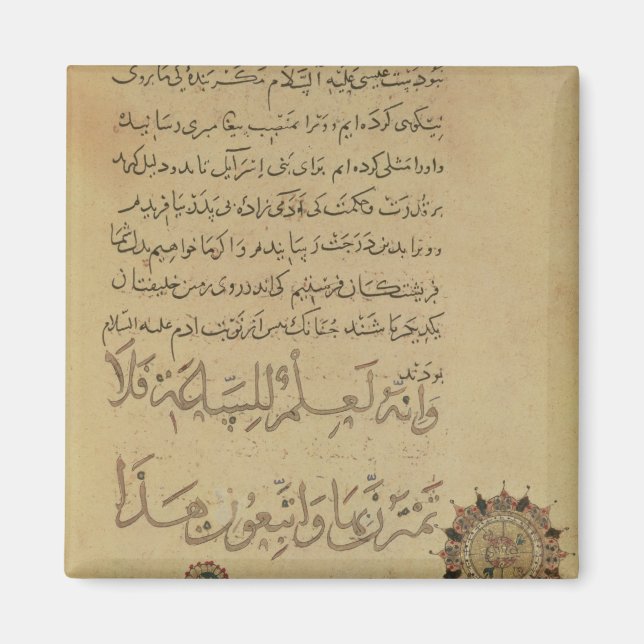 نبود پست عیسی علیه السلام مگر بندهٔ کی ما بروی
نیکوی کرده ایم و ورا بمنصب پیغامبری رسانیده
واورا مثلی کرده ایم برای بنی اسرآیل تا بدو دلیل کیرند
بر قدرت و حکمت کی آدمی زاده بی پدر بیافریدم
و ورا بدین درجت رسانیدم و اکر ما خواهیم بدل شما
فریشتکان فرستیم کی اندر روی زمین خلیفتان
یکدیکر باشند چنانک پس از نوبت ادم علیه السلام
بودند
وَاِنَّهُ لَعِلْمٌ لِلسَّاعَةِ فَلَا
تَمْتَرُنَّ بِهَا وَاتَّبِعُونِ هَذَا